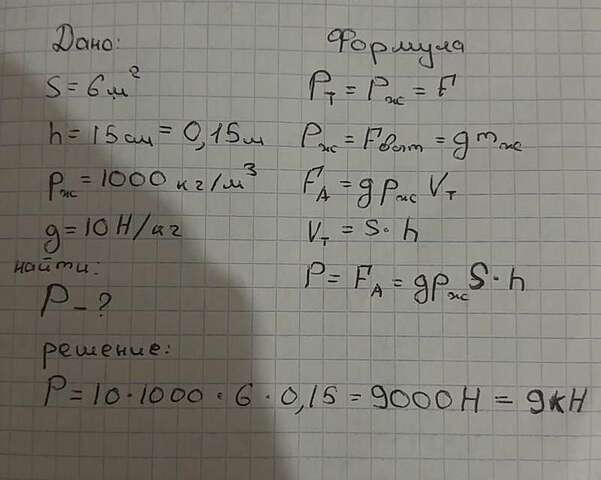 Дано:
S = 6 м²
h = 15 см = 0,15 м
ρж = 1000 кг/м³
g = 10 Н/кг
найти:
P - ?
Формула
Pт = Pж = F
Pж = Fвыт = g mж
FA = gρж Vт
Vт = S · h
P = FA = gρж S · h
решение:
P = 10 · 1000 · 6 · 0,15 = 9000 Н = 9кН